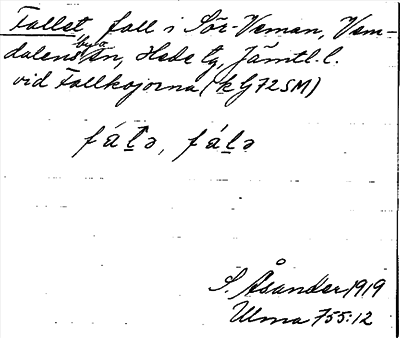 Fallet, fall i Sör-Veman, Vem-
dalens byar sn, Hede tg, Jämtl. l.
vid Fallkojorna (kG72SM)
fáḷə, fáḷə
S. Åsander 1919
Ulma 755:12